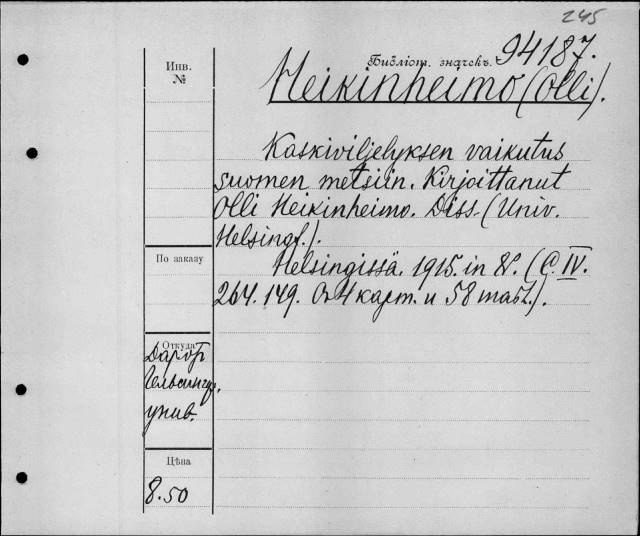 245
Библіот. значекъ. 94187.
Инв.
№
Heikinheimo (Olli).
Kaskiviljelyksen vaikutus
suomen metsiin. Kirjoittanut
Olli Heikinheimo. Diss. (Univ.
Helsingf.).
По заказу
Helsingissä. 1915. in 8°. (C. IV.
264. 149. Съ 4 карт. и 58 табл.).
Откуда
Даръ
Гельсингф.
унив.
Цѣна
8.50